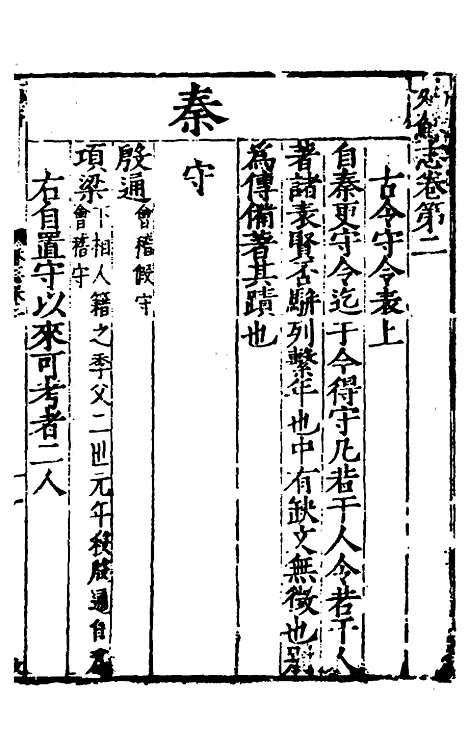 志卷第二
古今守令表上
自秦更守令迄于今得守凡若干人令若干人
著諸表賢否駢列繫年也中有缺文無徵也別
為傳備著其蹟也
秦
守
殷通會稽假守
項梁下相人籍之季父二世元年殺殷通自為會稽守
右自置守以來可考者二人